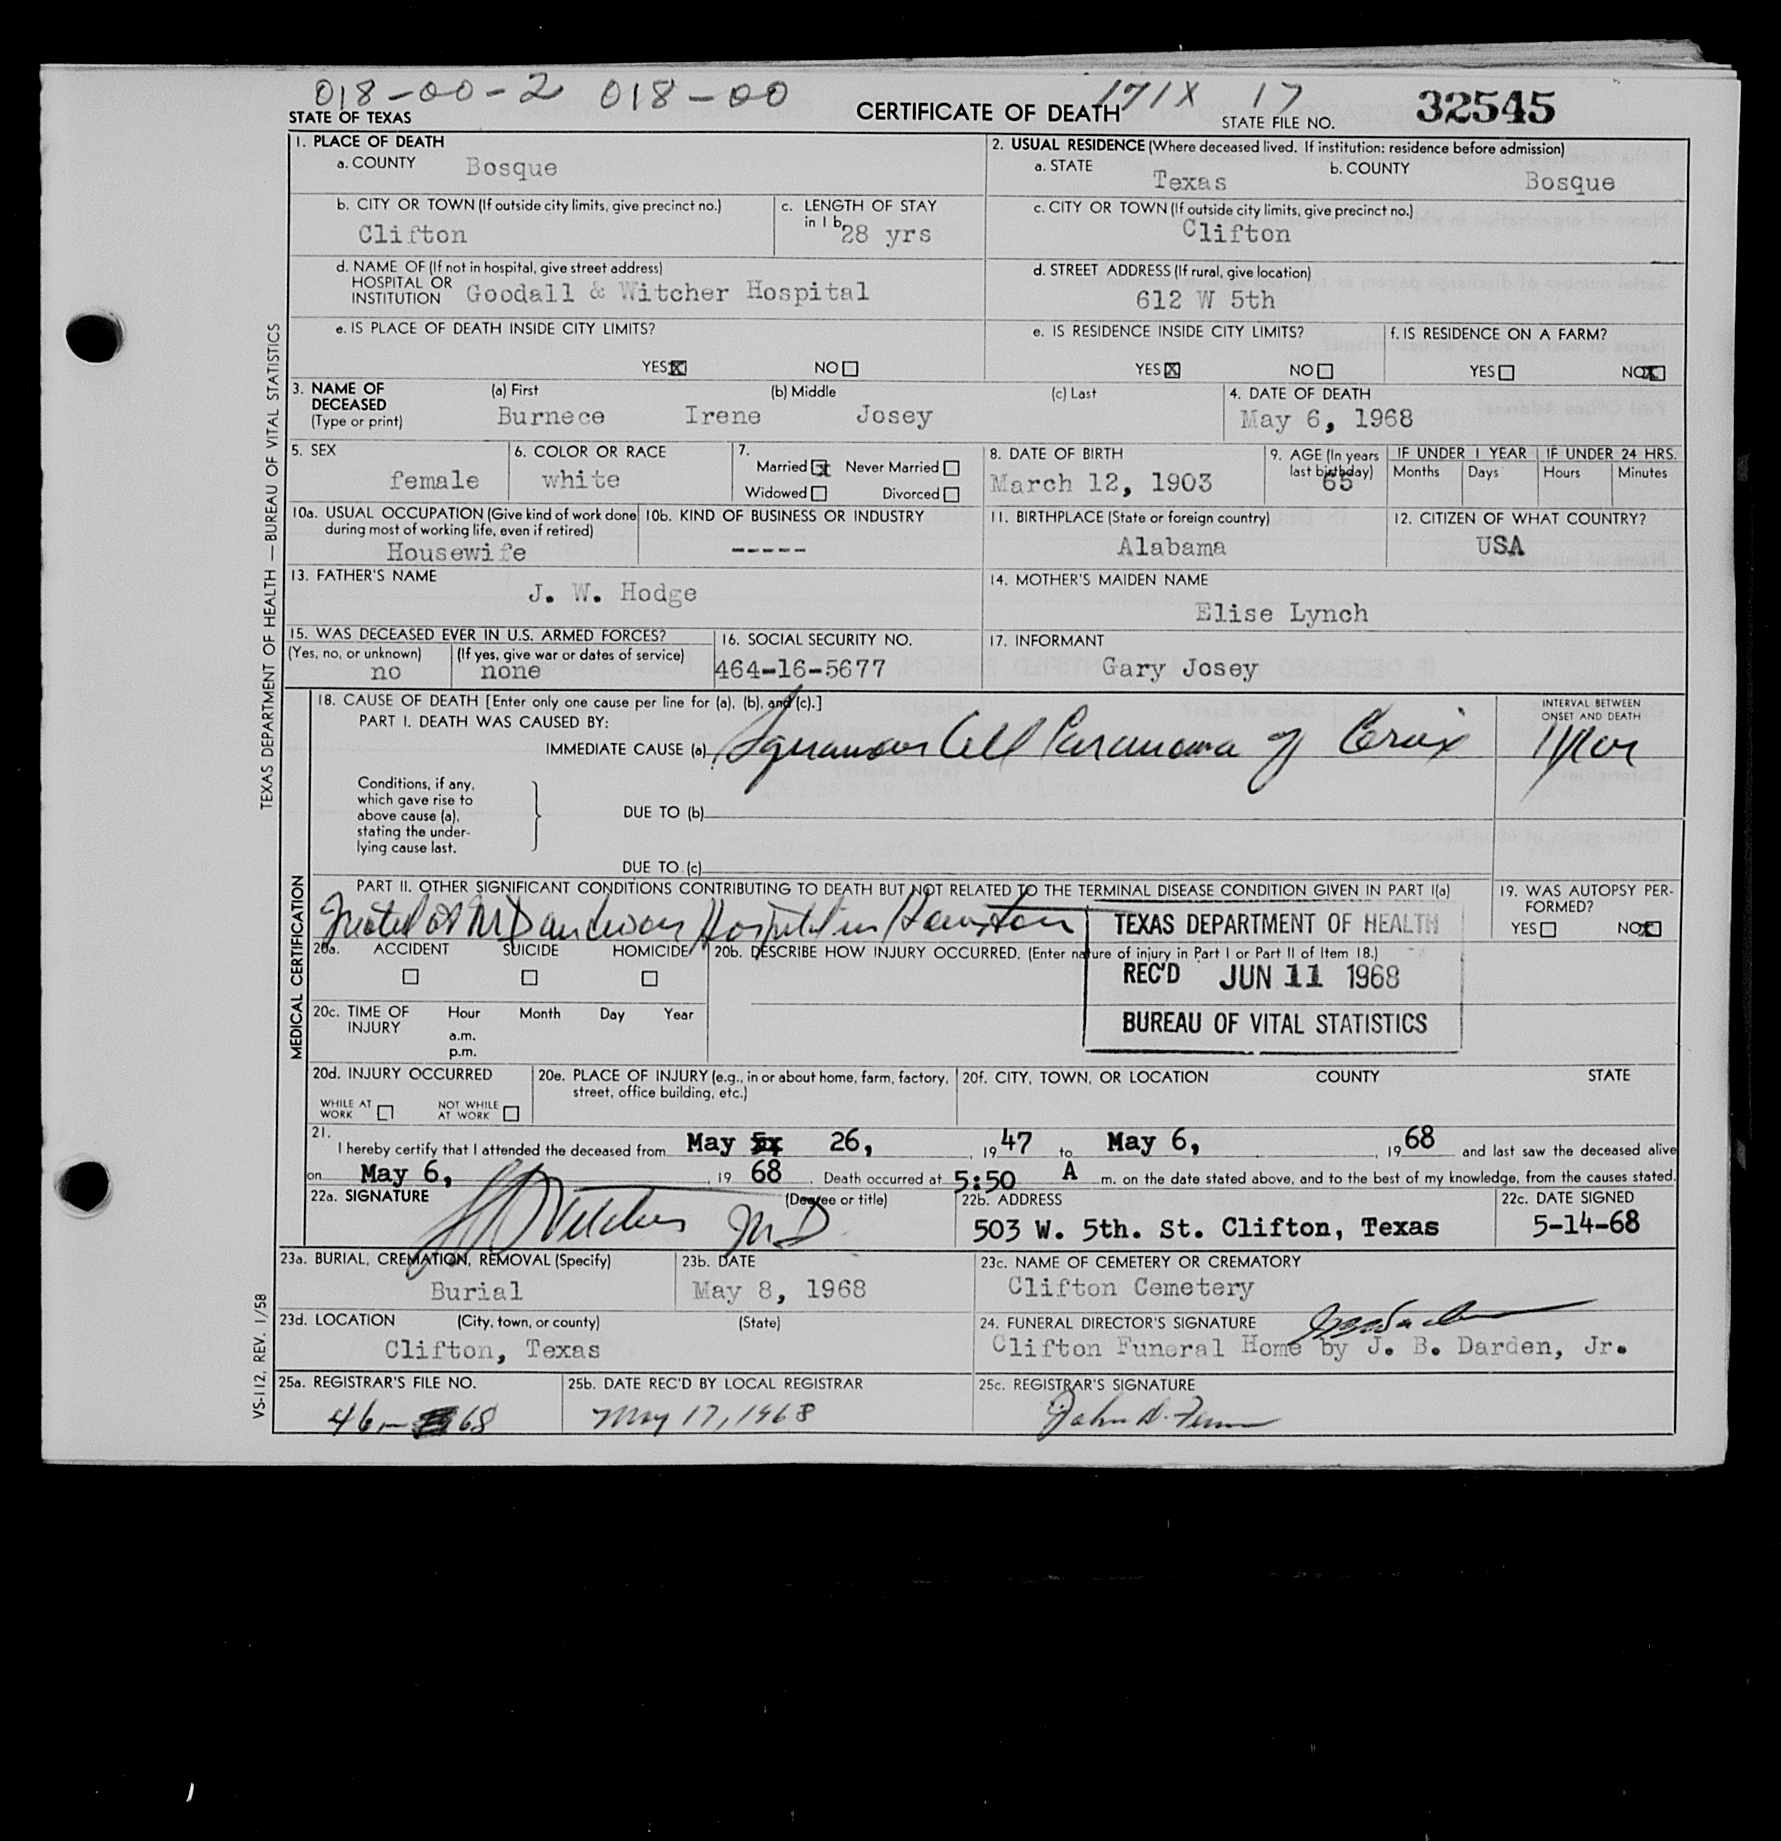 018-00-2 018-00 171X 17
STATE OF TEXAS CERTIFICATE OF DEATH STATE FILE NO. 32545
1. PLACE OF DEATH
a. COUNTY Bosque
2. USUAL RESIDENCE (Where deceased lived. If institution: residence before admission)
a. STATE Texas b. COUNTY Bosque
b. CITY OR TOWN (If outside city limits, give precinct no.) Clifton
c. LENGTH OF STAY in 1 b. 28 yrs
c. CITY OR TOWN (If outside city limits, give precinct no.) Clifton
d. NAME OF (If not in hospital, give street address)
HOSPITAL OR
INSTITUTION Goodall & Witcher Hospital
d. STREET ADDRESS (If rural, give location)
612 W 5th
e. IS PLACE OF DEATH INSIDE CITY LIMITS?
YES X NO
e. IS RESIDENCE INSIDE CITY LIMITS?
YES X NO
f. IS RESIDENCE ON A FARM?
YES NO X
3. NAME OF DECEASED (Type or print)
(a) First (b) Middle (c) Last
Burnece Irene Josey
4. DATE OF DEATH
May 6, 1968
5. SEX
female
6. COLOR OR RACE
white
7. Married X Never Married
Widowed Divorced
8. DATE OF BIRTH
March 12, 1903
9. AGE (In years last birthday)
65
IF UNDER 1 YEAR IF UNDER 24 HRS.
Months Days Hours Minutes
10a. USUAL OCCUPATION (Give kind of work done
during most of working life, even if retired)
Housewife
10b. KIND OF BUSINESS OR INDUSTRY
-----
11. BIRTHPLACE (State or foreign country)
Alabama
12. CITIZEN OF WHAT COUNTRY?
USA
13. FATHER'S NAME
J. W. Hodge
14. MOTHER'S MAIDEN NAME
Elise Lynch
15. WAS DECEASED EVER IN U.S. ARMED FORCES?
(Yes, no, or unknown) (If yes, give war or dates of service)
no none
16. SOCIAL SECURITY NO.
464-16-5677
17. INFORMANT
Gary Josey
18. CAUSE OF DEATH [Enter only one cause per line for (a), (b), and (c).]
PART I. DEATH WAS CAUSED BY:
IMMEDIATE CAUSE (a) Squamous Cell Carcinoma of Cervix
INTERVAL BETWEEN
ONSET AND DEATH
1 year
Conditions, if any,
which gave rise to
above cause (a),
stating the under-
lying cause last.
DUE TO (b)
DUE TO (c)
PART II. OTHER SIGNIFICANT CONDITIONS CONTRIBUTING TO DEATH BUT NOT RELATED TO THE TERMINAL DISEASE CONDITION GIVEN IN PART I(a)
Treated at M D Anderson Hospital in Houston
19. WAS AUTOPSY PER-
FORMED?
YES NO X
TEXAS DEPARTMENT OF HEALTH
REC'D JUN 11 1968
BUREAU OF VITAL STATISTICS
20a. ACCIDENT SUICIDE HOMICIDE
20b. DESCRIBE HOW INJURY OCCURRED. (Enter nature of injury in Part I or Part II of Item 18.)
20c. TIME OF INJURY
Hour Month Day Year
a.m.
p.m.
20d. INJURY OCCURRED
WHILE AT WORK NOT WHILE AT WORK
20e. PLACE OF INJURY (e.g., in or about home, farm, factory,
street, office building, etc.)
20f. CITY, TOWN, OR LOCATION COUNTY STATE
21.
I hereby certify that I attended the deceased from May 26, 1947 to May 6, 1968 and last saw the deceased alive
on May 6, 1968 Death occurred at 5:50 A m. on the date stated above, and to the best of my knowledge, from the causes stated.
22a. SIGNATURE (Degree or title)
Witcher M D
22b. ADDRESS
503 W. 5th. St. Clifton, Texas
22c. DATE SIGNED
5-14-68
23a. BURIAL, CREMATION, REMOVAL (Specify)
Burial
23b. DATE
May 8, 1968
23c. NAME OF CEMETERY OR CREMATORY
Clifton Cemetery
23d. LOCATION (City, town, or county) (State)
Clifton, Texas
24. FUNERAL DIRECTOR'S SIGNATURE
Clifton Funeral Home by J. B. Darden, Jr.
25a. REGISTRAR'S FILE NO.
46- 68
25b. DATE REC'D BY LOCAL REGISTRAR
May 17, 1968
25c. REGISTRAR'S SIGNATURE
John
TEXAS DEPARTMENT OF HEALTH — BUREAU OF VITAL STATISTICS
MEDICAL CERTIFICATION
VS-112, REV. 1/58